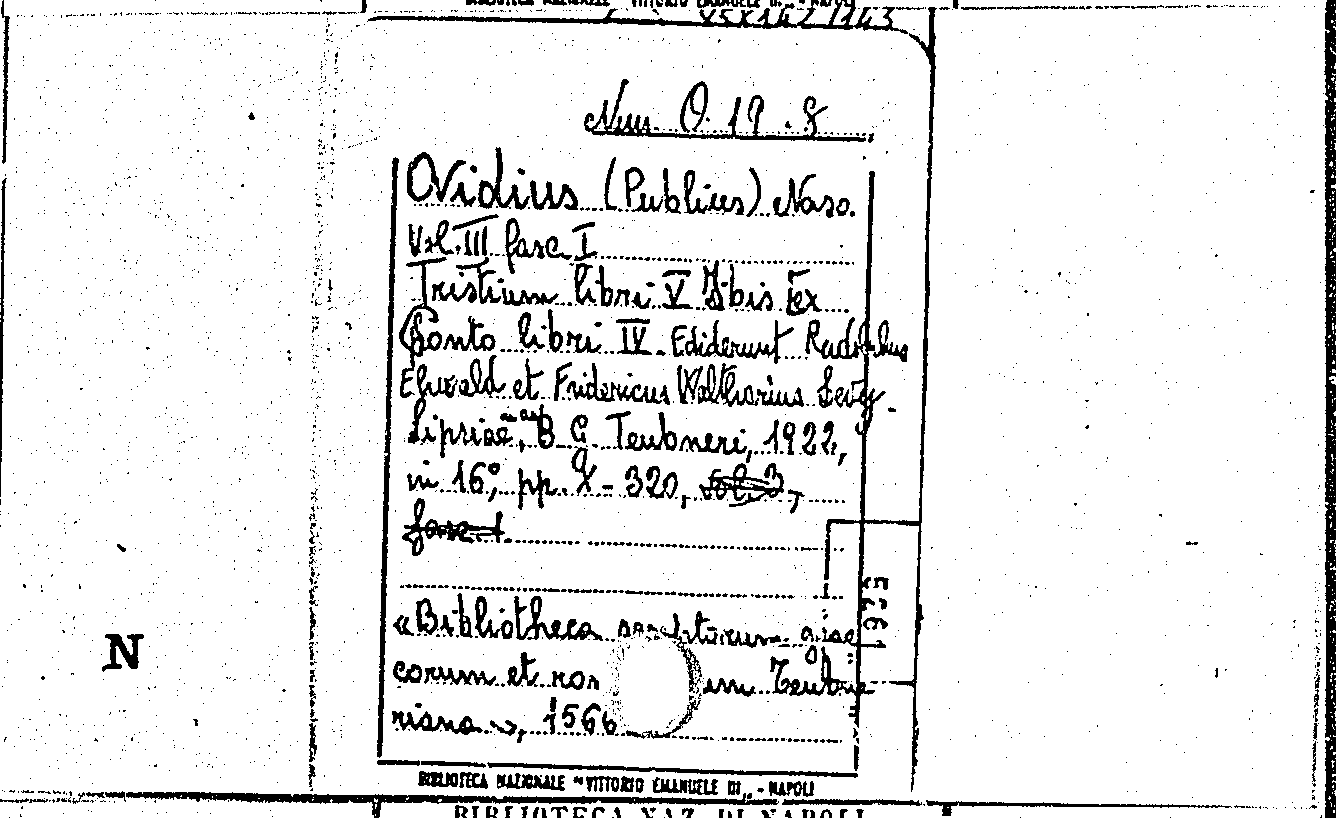 BIBLIOTECA NAZIONALE "VITTORIO EMANUELE III„ - NAPOLI
Num. O. 19. 8
Ovidius (Publius) Naso.
Vol. III fasc. I
Tristium libri V Ibis Ex
Ponto libri IV. Ediderunt Rudolphus
Ehwald et Fridericus Waltharius Levy.
Lipsiae, B. G. Teubneri, 1922,
in 16°, pp. X-320,
fasc. 1.
«Bibliotheca scriptorum grae
corum et ro
um Teubne
riana», 1566
N
BIBLIOTECA NAZIONALE "VITTORIO EMANUELE III„ - NAPOLI
BIBLIOTECA NAZ. DI NAPOLI